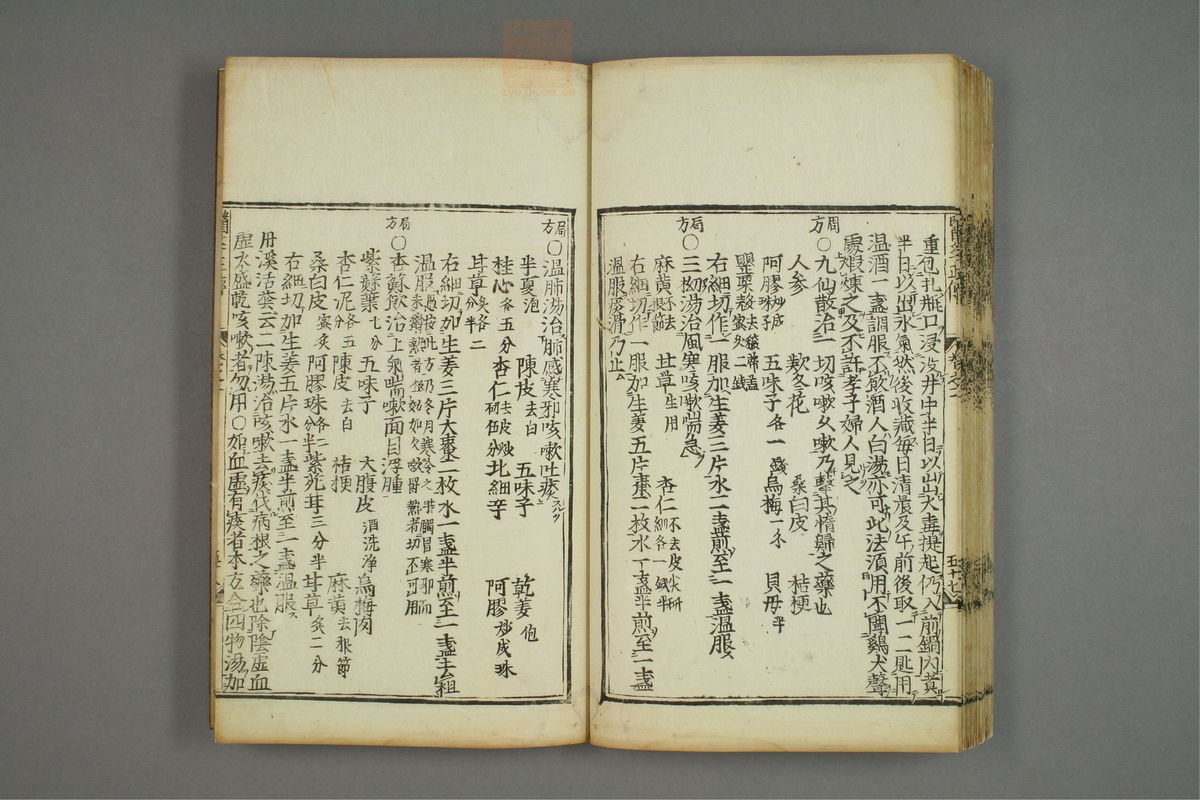 重包扎瓶口浸没井中半日以出火毒提起仍入前鍋内煑
半日以出水氣然後收藏每日清晨及午前後取一二匙用
温酒一盞調服不飲酒人白湯亦可此法須用不聞雞犬聲
處煆煉之及不許孝子婦人見之
局方○九仙散治一切咳嗽久嗽乃擊其惰歸之藥也
人参 欵冬花 桑白皮 桔梗
阿膠炒成珠子 五味子各一錢 烏梅一个 貝母半
罌粟殼去穰蒂盖蜜炙二錢
右細切作一服加生姜三片水二盞煎至一盞温服
局方○三抝湯治風寒咳嗽喘急
麻黄不去根節 甘草生用 杏仁不去皮尖研細各一錢半
右細切作一服加生姜五片棗二枚水一盞半煎至一盞
温服痰滑乃止
局方○温肺湯治肺感寒邪咳嗽吐痰
半夏泡 陳皮去白 五味子 乾姜炮
桂心各五分 杏仁去皮炒研伍分 北細辛 阿膠炒成珠
甘草炙各二分半
右細切加生姜三片大棗二枚水一盞半煎至一盞去粗
温服
局方○杏蘇飲治上氣喘嗽面目浮腫
紫蘇葉七分 五味子 大腹皮酒洗淨 烏梅肉
杏仁泥各五分 陳皮去白 桔梗 麻黄去根節
桑白皮蜜炙 阿膠珠各二分半 紫苑茸三分半 甘草炙二分
右細切加生姜五片水一盞半煎至一盞温服
丹溪活套云二陳湯治咳嗽去痰伐病根之藥也除陰虚血
虚火盛乾咳嗽者勿用○如血虚有痰者本方合四物湯加